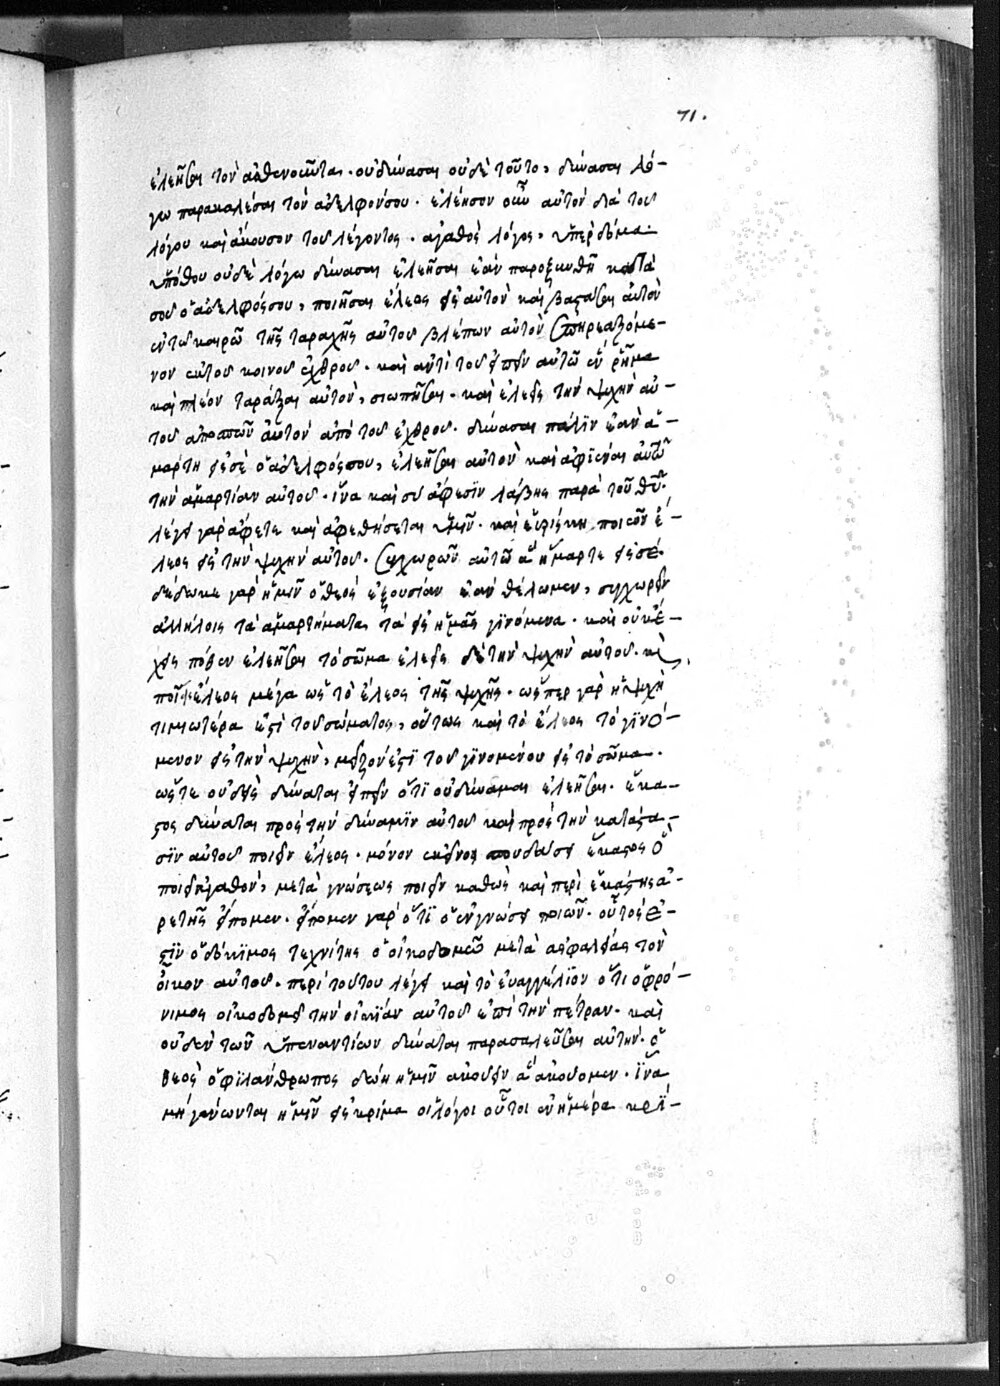 71.
ἐλεῆσαι τὸν ἀσθενοῦντα. οὐ δύνασαι οὐδὲ τοῦτο, δύνασαι λό-
γω παρακαλέσαι τὸν ἀδελφόν σου. ἐλέησον οὖν αὐτὸν διὰ τοῦ
λόγου καὶ ἄκουσον τοῦ λέγοντος. ἀγαθὸς λόγος, ὑπὲρ δόμα.
οὐδὲ λόγω δύνασαι ἐλεῆσαι ἐὰν παροξυνθῆ κατά
σου ὁ ἀδελφός σου, ποιῆσαι ἔλεος εἰς αὐτὸν καὶ βαστάσαι αὐτὸν
ἐν τῶ καιρῶ τῆς ταραχῆς αὐτοῦ βλέπων αὐτὸν ἐπηρεαζόμε-
νον ἐκ τοῦ κοινοῦ ἐχθροῦ. καὶ ἀντὶ τοῦ εἰπεῖν αὐτῶ ἓν ῥῆμα
καὶ πλέον ταράξαι αὐτὸν, σιωπῆσαι. καὶ ἐλεεῖς τὴν ψυχὴν αὐ-
τοῦ ἀποσπῶν αὐτὸν ἀπὸ τοῦ ἐχθροῦ. δύνασαι πάλϊν ἐὰν ἁ-
μάρτη εἰς σὲ ὁ ἀδελφός σου, ἐλεῆσαι αὐτὸν καὶ ἀφϊέναι αὐτῶ
τὴν ἁμαρτίαν αὐτοῦ. ἵνα καὶ σὺ ἄφεσϊν λάβης παρὰ τοῦ θῦ.
λέγει γὰρ ἄφετε καὶ ἀφεθήσεται ὑμῖν. καὶ εὑρίσκη ποιῶν ἔ-
λεος εἰς τὴν ψυχὴν αὐτοῦ. συγχωρῶν αὐτῶ ἃ ἥμαρτε εἰς σέ.
δέδωκε γὰρ ἡμῖν ὁ θεὸς ἐξουσίαν ἐὰν θέλωμεν, συγχωρεῖν
ἀλλήλοις τὰ ἁμαρτήματα τὰ εἰς ἡμᾶς γϊνόμενα. καὶ οὐκ ἔ-
χεις πόθεν ἐλεῆσαι τὸ σῶμα ἐλεεῖς δὲ τὴν ψυχὴν αὐτοῦ. κὶ
ποῖον ἔλεος μέγα ὡς τὸ ἔλεος τῆς ψυχῆς. ὥσπερ γὰρ ἡ ψυχὴ
τιμιωτέρα ἐστὶ τοῦ σώματος, οὕτως καὶ τὸ ἔλεος τὸ γϊνό-
μενον εἰς τὴν ψυχὴν, μεῖζόν ἐστϊ τοῦ γϊνομένου εἰς τὸ σῶμα.
ὥστε οὐδεὶς δύναται εἰπεῖν ὅτϊ οὐ δύναμαι ἐλεῆσαι. ἕκα-
στος δύναται πρὸς τὴν δύναμϊν αὐτοῦ καὶ πρὸς τὴν κατάστα-
σϊν αὐτοῦ ποιεῖν ἔλεος. μόνον σπουδάσει ἕκαστος ὃ
ποιεῖ ἀγαθὸν, μετὰ γνώσεως ποιεῖν καθὼς καὶ περὶ ἑκάστης ἀ-
ρετῆς εἴπομεν. εἴπομεν γὰρ ὅτϊ ὁ ἐν γνώσει ποιῶν. οὗτός ἐ-
στϊν ὁ δόκϊμος τεχνίτης ὁ οἰκοδομῶν μετὰ ἀσφαλείας τὸν
οἶκον αὐτοῦ. περὶ τούτου λέγει καὶ τὸ εὐαγγέλϊον ὅτι ὁ φρό-
νιμος οἰκοδομεῖ τὴν οἰκίαν αὐτοῦ ἐπὶ τὴν πέτραν. καὶ
οὐδὲν τῶν ὑπεναντίων δύναται παρασαλεῦσαι αὐτήν. ὁ
θεὸς ὁ φϊλάνθρωπος δώη ἡμῖν ἀκούειν ἃ ἀκούομεν. ἵνα
μὴ γένωνται ἡμῖν εἰς κρίμα οἱ λόγοι οὗτοι ἐν ἡμέρα κρϊ-